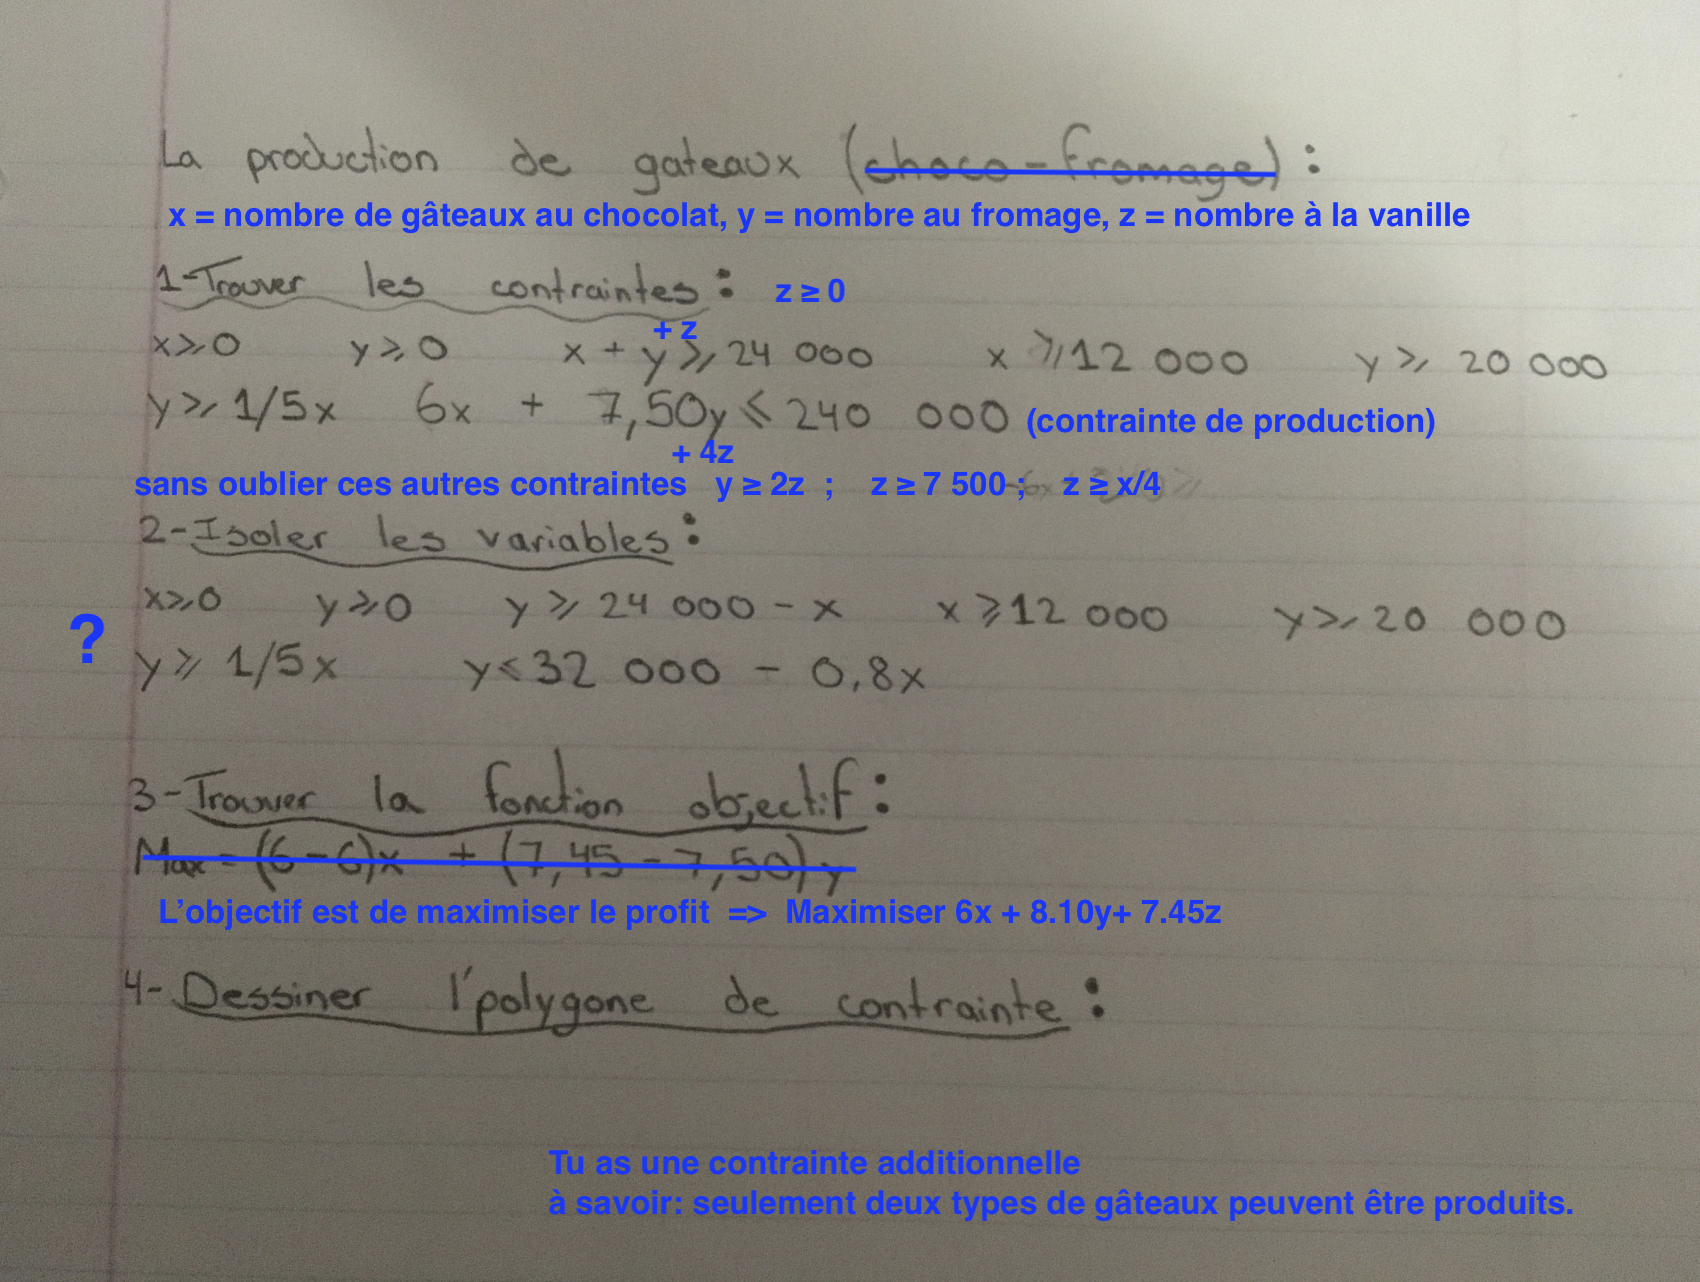 La production de gateaux (choco-fromage) :
x = nombre de gâteaux au chocolat, y = nombre au fromage, z = nombre à la vanille
1-Trouver les contraintes : z ≥ 0
+ z
x ≥ 0 y ≥ 0 x + y ≥ 24 000 x ≥ 12 000 y ≥ 20 000
y ≥ 1/5x 6x + 7,50y ≤ 240 000 (contrainte de production)
+ 4z
sans oublier ces autres contraintes y ≥ 2z ; z ≥ 7 500 ; z ≥ x/4
2-Isoler les variables :
x ≥ 0 y ≥ 0 y ≥ 24 000 - x x ≥ 12 000 y ≥ 20 000
?
y ≥ 1/5x y ≤ 32 000 - 0,8x
3-Trouver la fonction objectif :
Max = (6-6)x + (7,45-7,50)y
L'objectif est de maximiser le profit => Maximiser 6x + 8.10y+ 7.45z
4-Dessiner l'polygone de contrainte :
Tu as une contrainte additionnelle
à savoir: seulement deux types de gâteaux peuvent être produits.